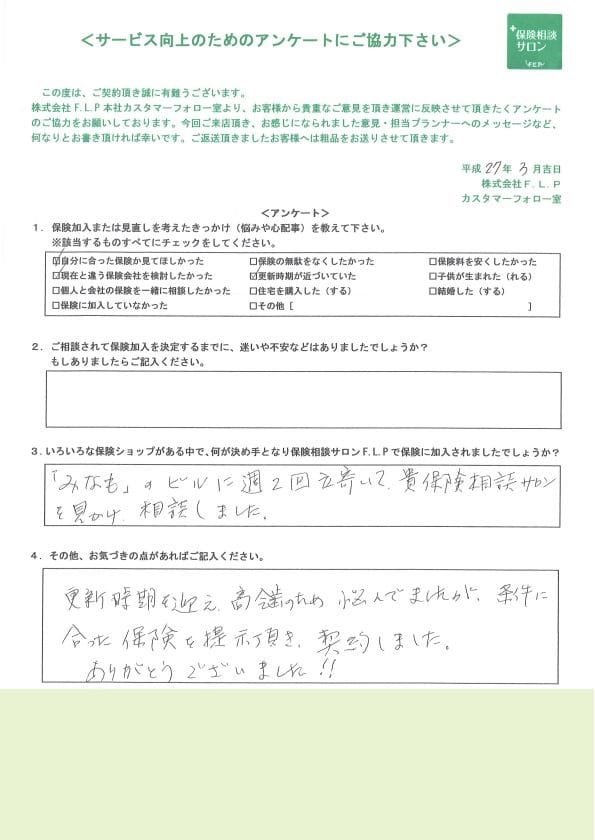 <サービス向上のためのアンケートにご協力下さい>
+保険相談
サロン
F.L.P
この度は、ご契約頂き誠に有難うございます。
株式会社F.L.P本社カスタマーフォロー室より、お客様から貴重なご意見を頂き運営に反映させて頂きたくアンケート
のご協力をお願いしております。今回ご来店頂き、お感じになられました意見・担当プランナーへのメッセージなど、
何なりとお書き頂ければ幸いです。ご返送頂きましたお客様へは粗品をお送りさせて頂きます。
平成 27年 3月吉日
株式会社F.L.P
カスタマーフォロー室
<アンケート>
1．保険加入または見直しを考えたきっかけ（悩みや心配事）を教えて下さい。
※該当するものすべてにチェックをしてください。
☑自分に合った保険か見てほしかった □保険の無駄をなくしたかった □保険料を安くしたかった
☑現在と違う保険会社を検討したかった ☑更新時期が近づいていた □子供が生まれた（れる）
□個人と会社の保険を一緒に相談したかった □住宅を購入した（する） □結婚した（する）
□保険に加入していなかった □その他［ ］
2．ご相談されて保険加入を決定するまでに、迷いや不安などはありましたでしょうか？
もしありましたらご記入ください。
3．いろいろな保険ショップがある中で、何が決め手となり保険相談サロンF.L.Pで保険に加入されましたでしょうか？
「みなも」のビルに週2回立寄いて、貴保険相談サロン
を見かけ、相談しました。
4．その他、お気づきの点があればご記入ください。
更新時期を迎え、高のため悩んでましたが、条件に
合った保険を提示頂き、契約しました。
ありがとうございました!!